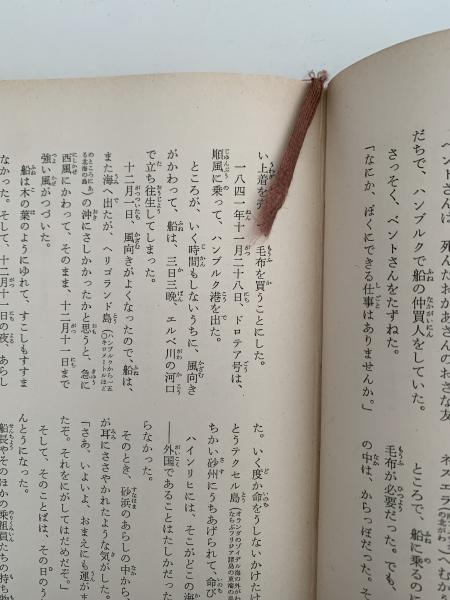 ベントさんは、死んだおかあさんのおさな友
だちで、ハンブルクで船の仲買人をしていた。
さっそく、ベントさんをたずねた。
「なにか、ぼくにできる仕事はありませんか。」
ところで、船に乗るのに
毛布が必要だった。でも、
の中は、からっぽだった。そ
い上着を売
毛布を買うことにした。
一八四一年十一月二十八日、ドロテア号は、
順風に乗って、ハンブルク港を出た。
ところが、いく時間もしないうちに、風向き
がかわって、船は、三日三晩、エルベ川の河口
で立ち往生してしまった。
十二月一日、風向きがよくなったので、船は、
また海へ出たが、ヘリゴランド島
の沖にさしかかったかと思うと、急に
西風にかわって、そのまま、十二月十一日まで
強い風がつづいた。
船は木の葉のようにゆれて、すこしもすすま
なかった。そして、十二月十一日の夜、あらし
た。いく度か命をうしないかけた
とうテクセル島
ちかい砂州にうちあげられて、命び
ハインリヒには、そこがどこの海
──外国であることはたしかだった
らなかった。
そのとき、砂浜のあらしの中から、
が耳にささやかれたような気がした。
「さあ、いよいよ、おまえにも運がま
たぞ。それをにがしてはだめだぞ。」
そして、そのことばは、その日のう
んとうになった。
船長やそのほかの乗組員たちの持ち物